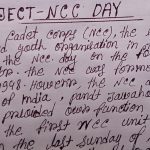 JECT-NCC DAY
Cadet Corps (NCC), the s
d youth organisation in
the NCC day on the
r. the NCC was formed
1948. However, the NCC
of India, pandit Jawaha
presided over function
the first NCC unit
the last Sunday of